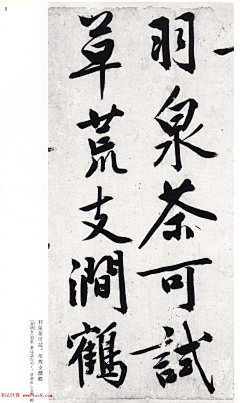 羽泉茶可試
草荒支澗鶴